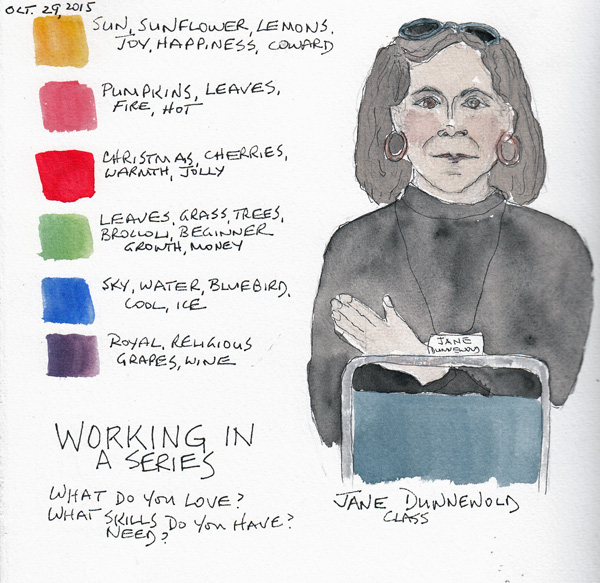 OCT. 29, 2015
SUN, SUNFLOWER, LEMONS,
JOY, HAPPINESS, COWARD
PUMPKINS, LEAVES,
FIRE, HOT
CHRISTMAS, CHERRIES,
WARMTH, JOLLY
LEAVES, GRASS, TREES,
BROCCOLI, BEGINNER
GROWTH, MONEY
SKY, WATER, BLUEBIRD,
COOL, ICE
ROYAL, RELIGIOUS
GRAPES, WINE
WORKING IN
A SERIES
WHAT DO YOU LOVE?
WHAT SKILLS DO YOU HAVE?
NEED?
JANE
DUNNEWOLD
JANE DUNNEWOLD
CLASS